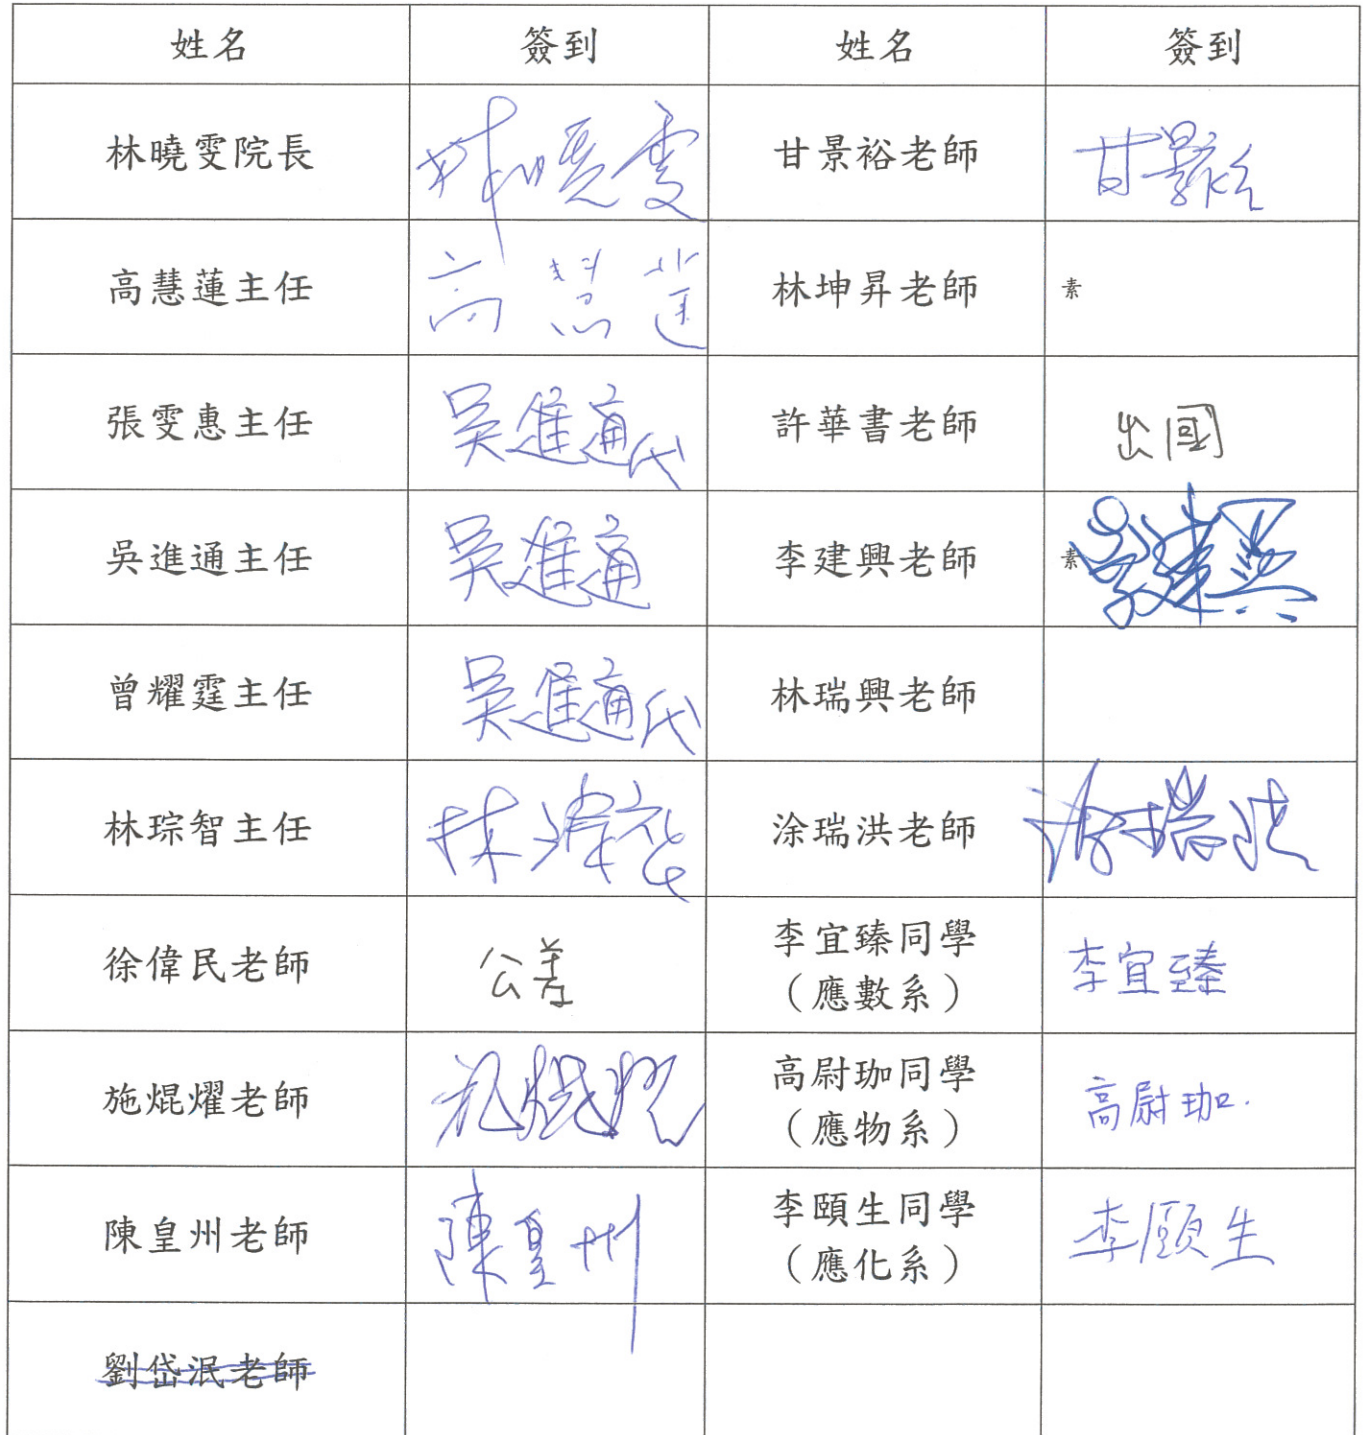 姓名 簽到 姓名 簽到
林曉雯院長 林曉雯 甘景裕老師 甘景裕
高慧蓮主任 高慧蓮 林坤昇老師 素
張雯惠主任 吳進通代 許華書老師 出國
吳進通主任 吳進通 李建興老師 素 李建興
曾耀霆主任 吳進通代 林瑞興老師
林琮智主任 涂瑞洪老師 涂瑞洪
徐偉民老師 公差 李宜臻同學
（應數系） 李宜臻
施焜燿老師 施焜燿 高尉珈同學
（應物系） 高尉珈.
陳皇州老師 陳皇州 李頤生同學
（應化系） 李頤生
劉岱泯老師